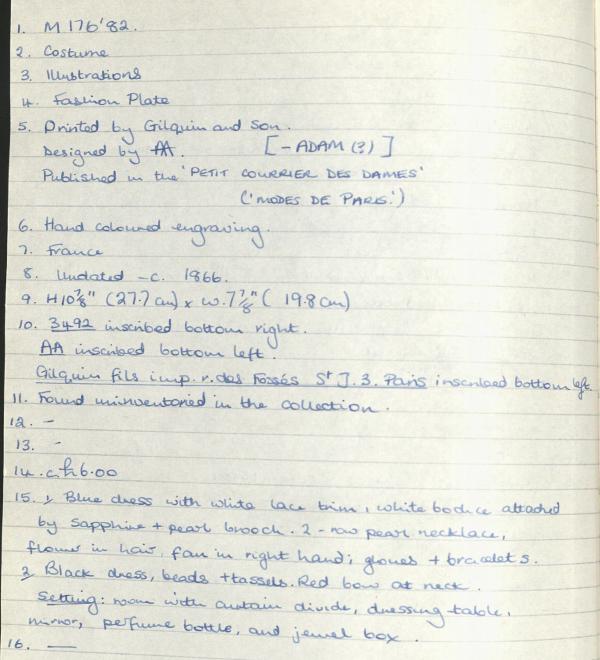 1. M 176'82.
2. Costume
3. Illustrations
4. Fashion Plate
5. Printed by Gilquin and Son.
Designed by AA. [- ADAM (?)]
Published in the 'PETIT COURRIER DES DAMES'
('MODES DE PARIS.')
6. Hand coloured engraving.
7. France
8. Undated - c. 1866.
9. H10⅞" (27.7 cm) x w.7⅞" (19.8 cm)
10. 3492 inscribed bottom right.
AA inscribed bottom left.
Gilquin fils imp. r. des Fossés St J. 3. Paris inscribed bottom left.
11. Found uninventoried in the collection.
12. -
13. -
14. c. £6.00
15. 1, Blue dress with white lace trim, white bodice attached
by sapphire + pearl brooch. 2-row pearl necklace,
flower in hair, fan in right hand; gloves + bracelets.
2, Black dress, beads + tassels. Red bow at neck.
Setting: room with curtain divide, dressing table,
mirror, perfume bottle, and jewel box.
16. —